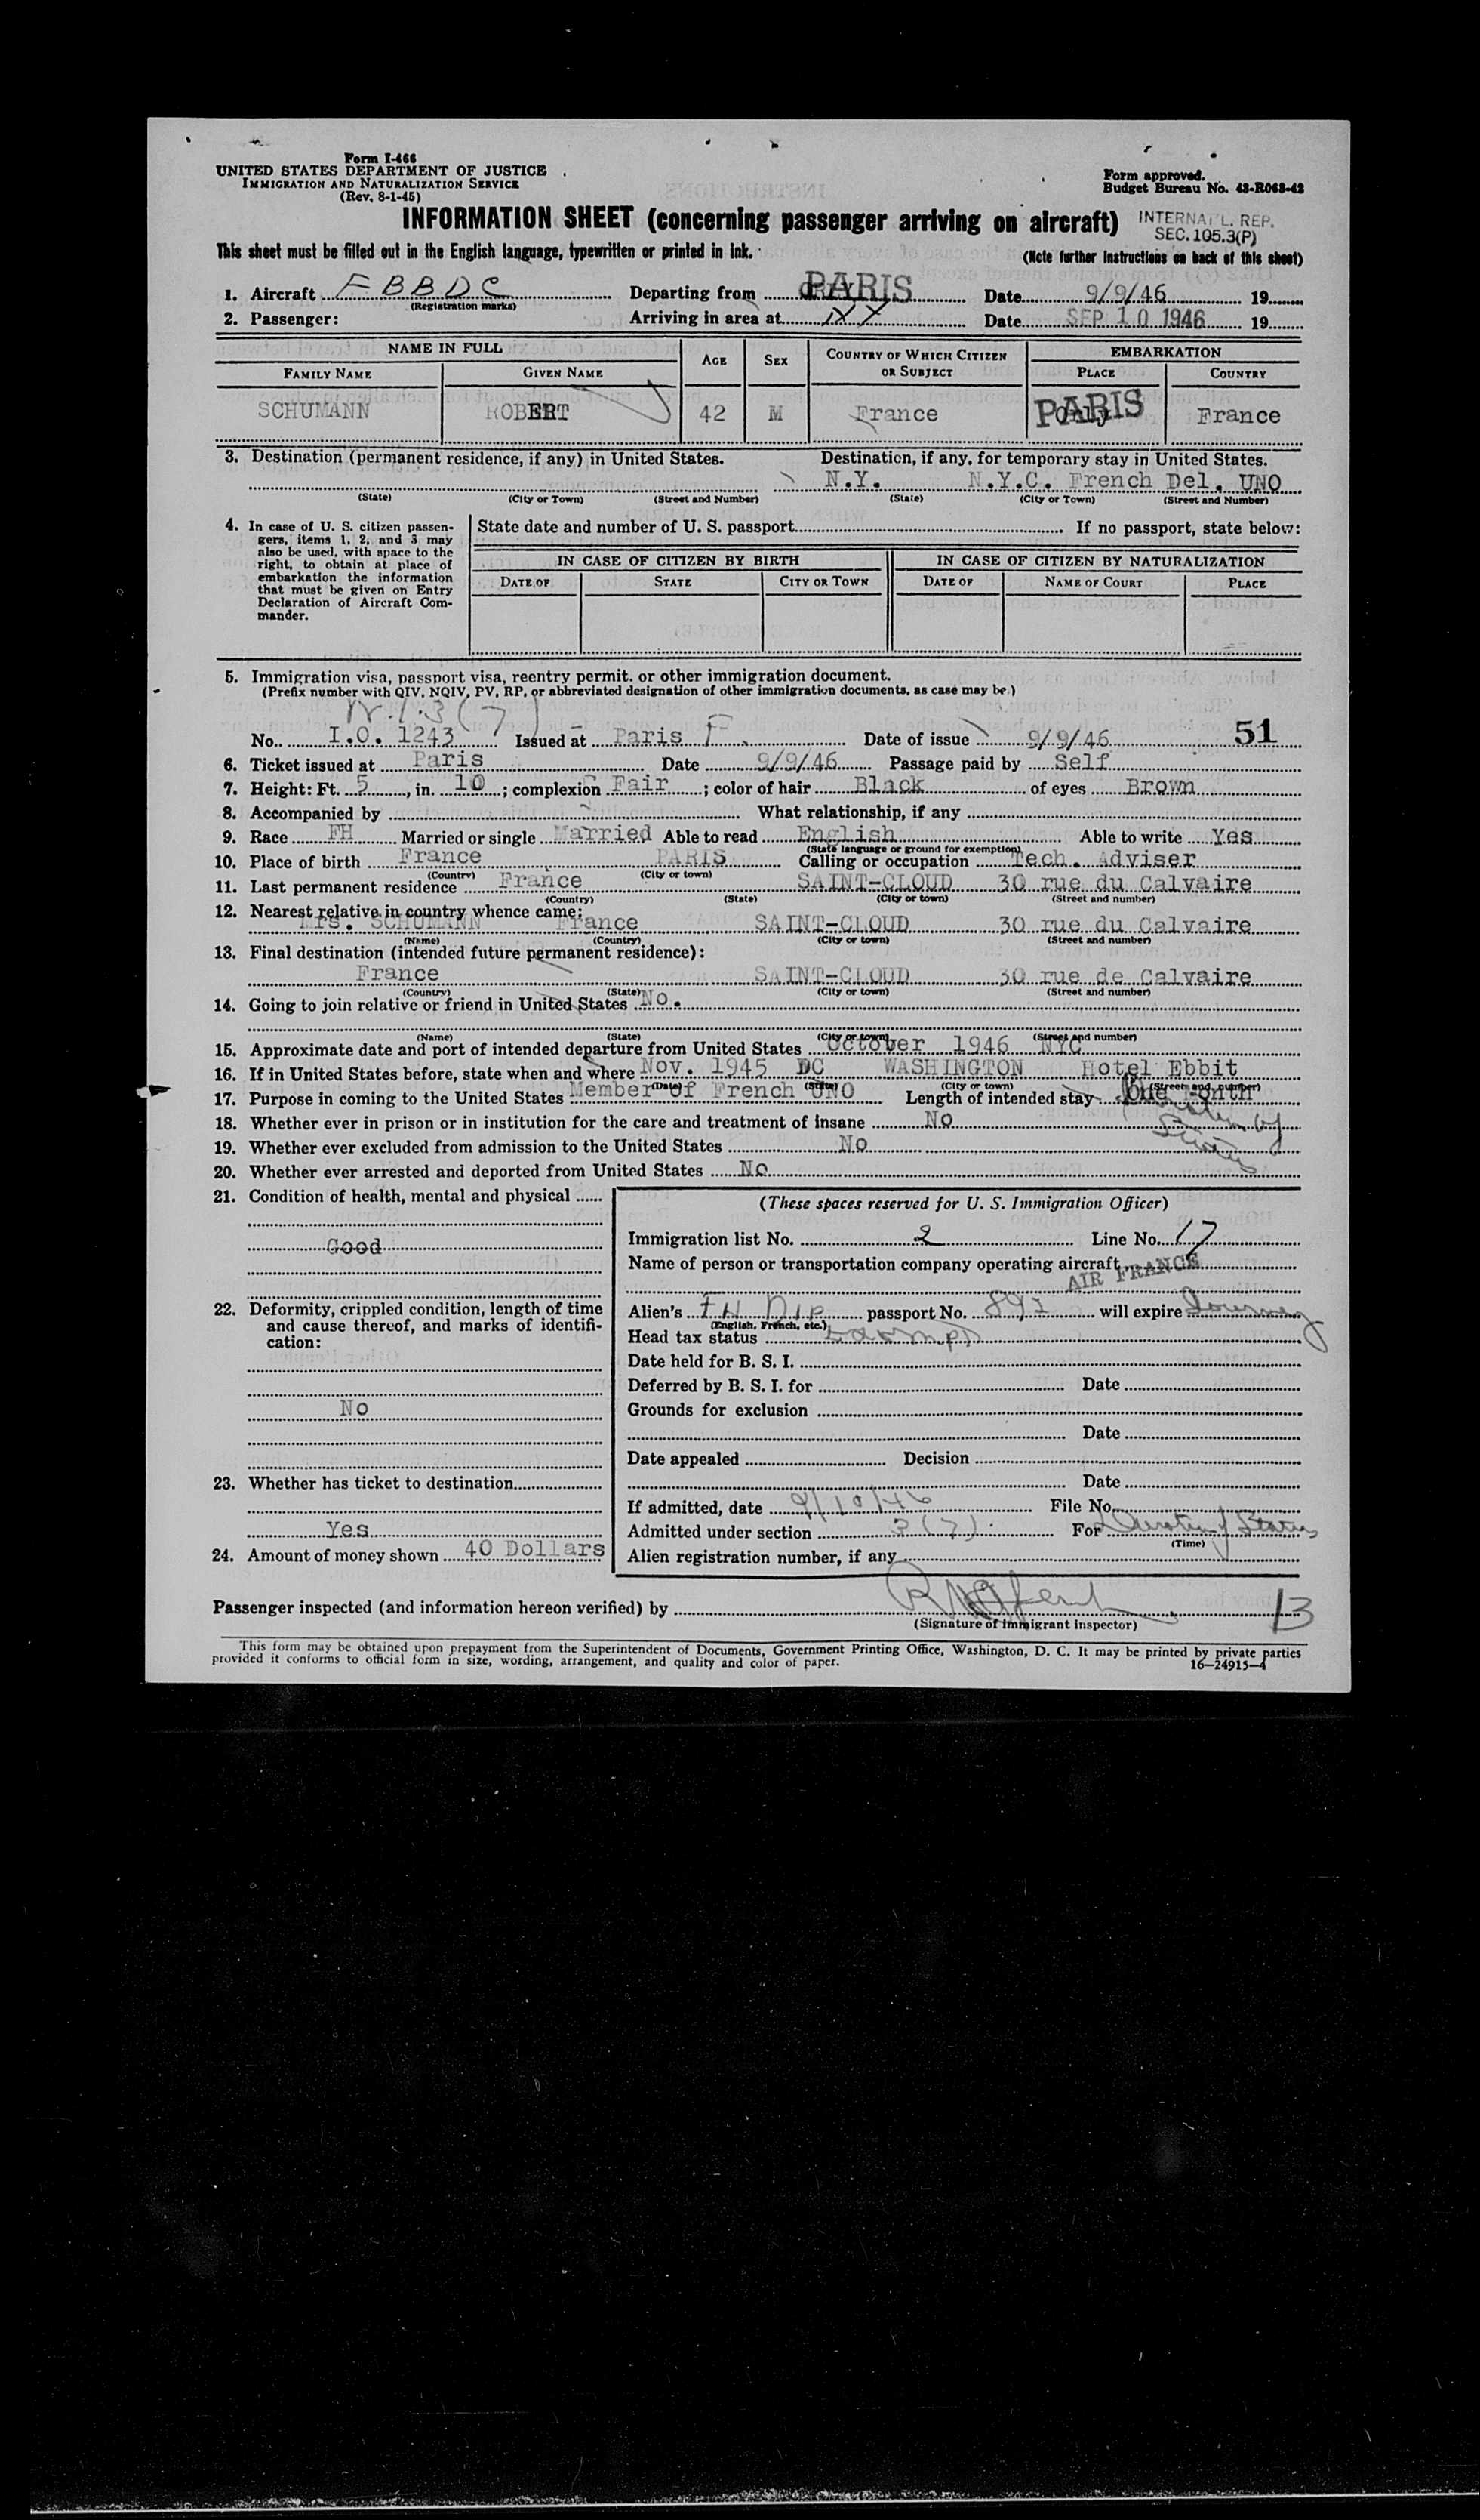 Form I-466
UNITED STATES DEPARTMENT OF JUSTICE
IMMIGRATION AND NATURALIZATION SERVICE
(Rev. 8-1-45)
Form approved.
Budget Bureau No. 43-R063-42
INFORMATION SHEET (concerning passenger arriving on aircraft)
INTERNAT'L. REP.
SEC. 105.3(P)
This sheet must be filled out in the English language, typewritten or printed in ink.
(Note further instructions on back of this sheet)
1. Aircraft FBBDC Departing from PARIS Date 9/9/46 19
(Registration marks)
2. Passenger: Arriving in area at Date SEP 10 1946 19
NAME IN FULL AGE SEX COUNTRY OF WHICH CITIZEN OR SUBJECT EMBARKATION
FAMILY NAME GIVEN NAME PLACE COUNTRY
SCHUMANN ROBERT 42 M France PARIS France
3. Destination (permanent residence, if any) in United States. Destination, if any, for temporary stay in United States.
N.Y. N.Y.C. French Del. UNO
(State) (City or Town) (Street and Number) (State) (City or Town) (Street and Number)
4. In case of U. S. citizen passengers, items 1, 2, and 3 may also be used, with space to the right, to obtain at place of embarkation the information that must be given on Entry Declaration of Aircraft Commander.
State date and number of U. S. passport If no passport, state below:
IN CASE OF CITIZEN BY BIRTH IN CASE OF CITIZEN BY NATURALIZATION
DATE OF STATE CITY OR TOWN DATE OF NAME OF COURT PLACE
5. Immigration visa, passport visa, reentry permit, or other immigration document.
(Prefix number with QIV, NQIV, PV, RP, or abbreviated designation of other immigration documents, as case may be.)
No. I.O. 1243 Issued at Paris F. Date of issue 9/9/46 51
6. Ticket issued at Paris Date 9/9/46 Passage paid by Self
7. Height: Ft. 5, in. 10; complexion Fair; color of hair Black of eyes Brown
8. Accompanied by What relationship, if any
9. Race FH Married or single Married Able to read English Able to write Yes
(State language or ground for exemption)
10. Place of birth France PARIS Calling or occupation Tech. Adviser
(Country) (City or town)
11. Last permanent residence France SAINT-CLOUD 30 rue du Calvaire
(Country) (State) (City or town) (Street and number)
12. Nearest relative in country whence came:
Mrs. SCHUMANN France SAINT-CLOUD 30 rue du Calvaire
(Name) (Country) (City or town) (Street and number)
13. Final destination (intended future permanent residence):
France SAINT-CLOUD 30 rue de Calvaire
(Country) (State) (City or town) (Street and number)
14. Going to join relative or friend in United States No.
(Name) (State) (City or town) (Street and number)
15. Approximate date and port of intended departure from United States October 1946 NYC
16. If in United States before, state when and where Nov. 1945 DC WASHINGTON Hotel Ebbit
(Date) (State) (City or town) (Street and number)
17. Purpose in coming to the United States Member of French UNO Length of intended stay One Month
18. Whether ever in prison or in institution for the care and treatment of insane No
19. Whether ever excluded from admission to the United States No
20. Whether ever arrested and deported from United States No
21. Condition of health, mental and physical
Good
22. Deformity, crippled condition, length of time and cause thereof, and marks of identification:
No
23. Whether has ticket to destination
Yes
24. Amount of money shown 40 Dollars
(These spaces reserved for U. S. Immigration Officer)
Immigration list No. 2 Line No. 17
Name of person or transportation company operating aircraft
AIR FRANCE
Alien's FH Dip passport No. 891 will expire Journey
(English, French, etc.)
Head tax status Exempt
Date held for B. S. I.
Deferred by B. S. I. for Date
Grounds for exclusion
Date
Date appealed Decision
Date
If admitted, date 9/10/46 File No.
Admitted under section 3(7) For Duration of Status
(Time)
Alien registration number, if any
Passenger inspected (and information hereon verified) by 13
(Signature of immigrant inspector)
This form may be obtained upon prepayment from the Superintendent of Documents, Government Printing Office, Washington, D. C. It may be printed by private parties
provided it conforms to official form in size, wording, arrangement, and quality and color of paper. 16—24915-4